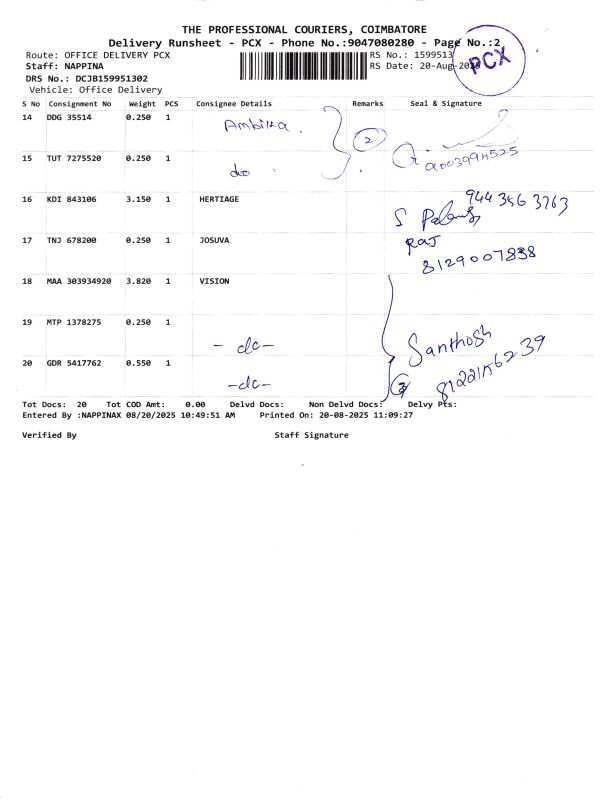 THE PROFESSIONAL COURIERS, COIMBATORE
Delivery Runsheet - PCX - Phone No.:9047080280 - Page No.:2
Route: OFFICE DELIVERY PCX RS No.: 1599513
Staff: NAPPINA RS Date: 20-Aug-2025
PCX
DRS No.: DCJB159951302
Vehicle: Office Delivery
S No Consignment No Weight PCS Consignee Details Remarks Seal & Signature
14 DDG 35514 0.250 1 Ambika 2
15 TUT 7275520 0.250 1 do
16 KDI 843106 3.150 1 HERTIAGE 944 356 3763
17 TNJ 678200 0.250 1 JOSUVA RAJ
8129007838
18 MAA 303934920 3.820 1 VISION
19 MTP 1378275 0.250 1 - do - Santhosh
20 GDR 5417762 0.550 1 - do - 3
Tot Docs: 20 Tot COD Amt: 0.00 Delvd Docs: Non Delvd Docs: Delvy Pts:
Entered By :NAPPINAX 08/20/2025 10:49:51 AM Printed On: 20-08-2025 11:09:27
Verified By Staff Signature